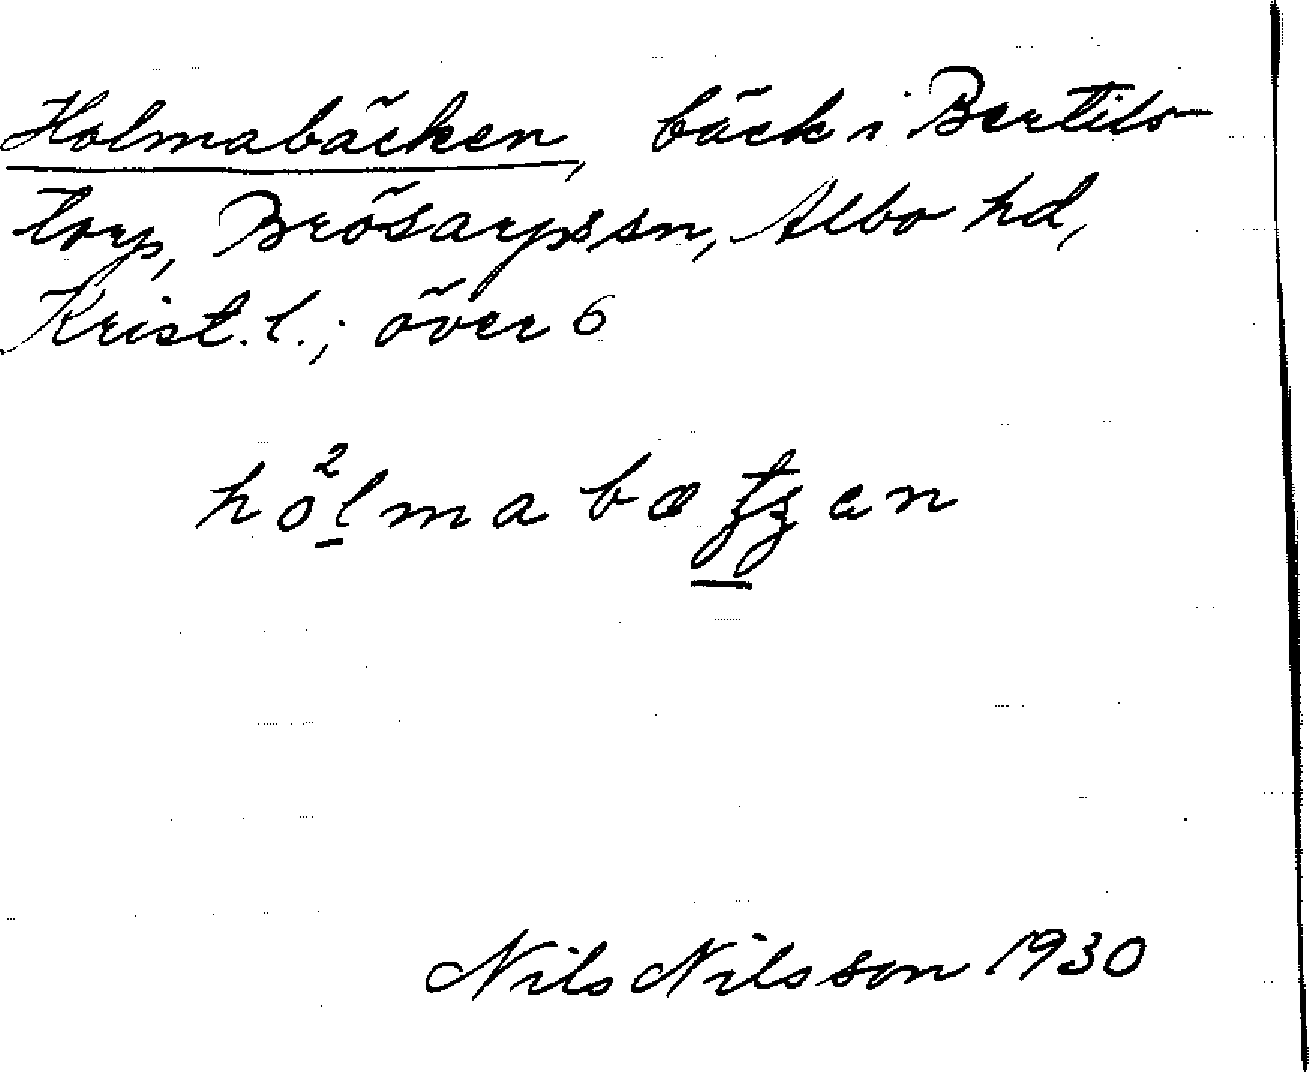 Holmabäcken, bäck i Bertils-
torp, Brösarps sn, Albo hd,
Krist. l.; över 6
Nils Nilsson 1930